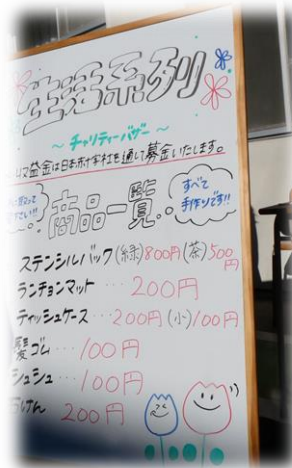 生活系列
～ チャリティーバザー ～
収益金は日本赤十字社を通して募金いたします。
すべて
手作りです!!
商品一覧
ステンシルバック(緑)800円(茶)500円
ランチョンマット… 200円
ティッシュケース…200円(小)100円
髪ゴム…100円
シュシュ…100円
石けん 200円